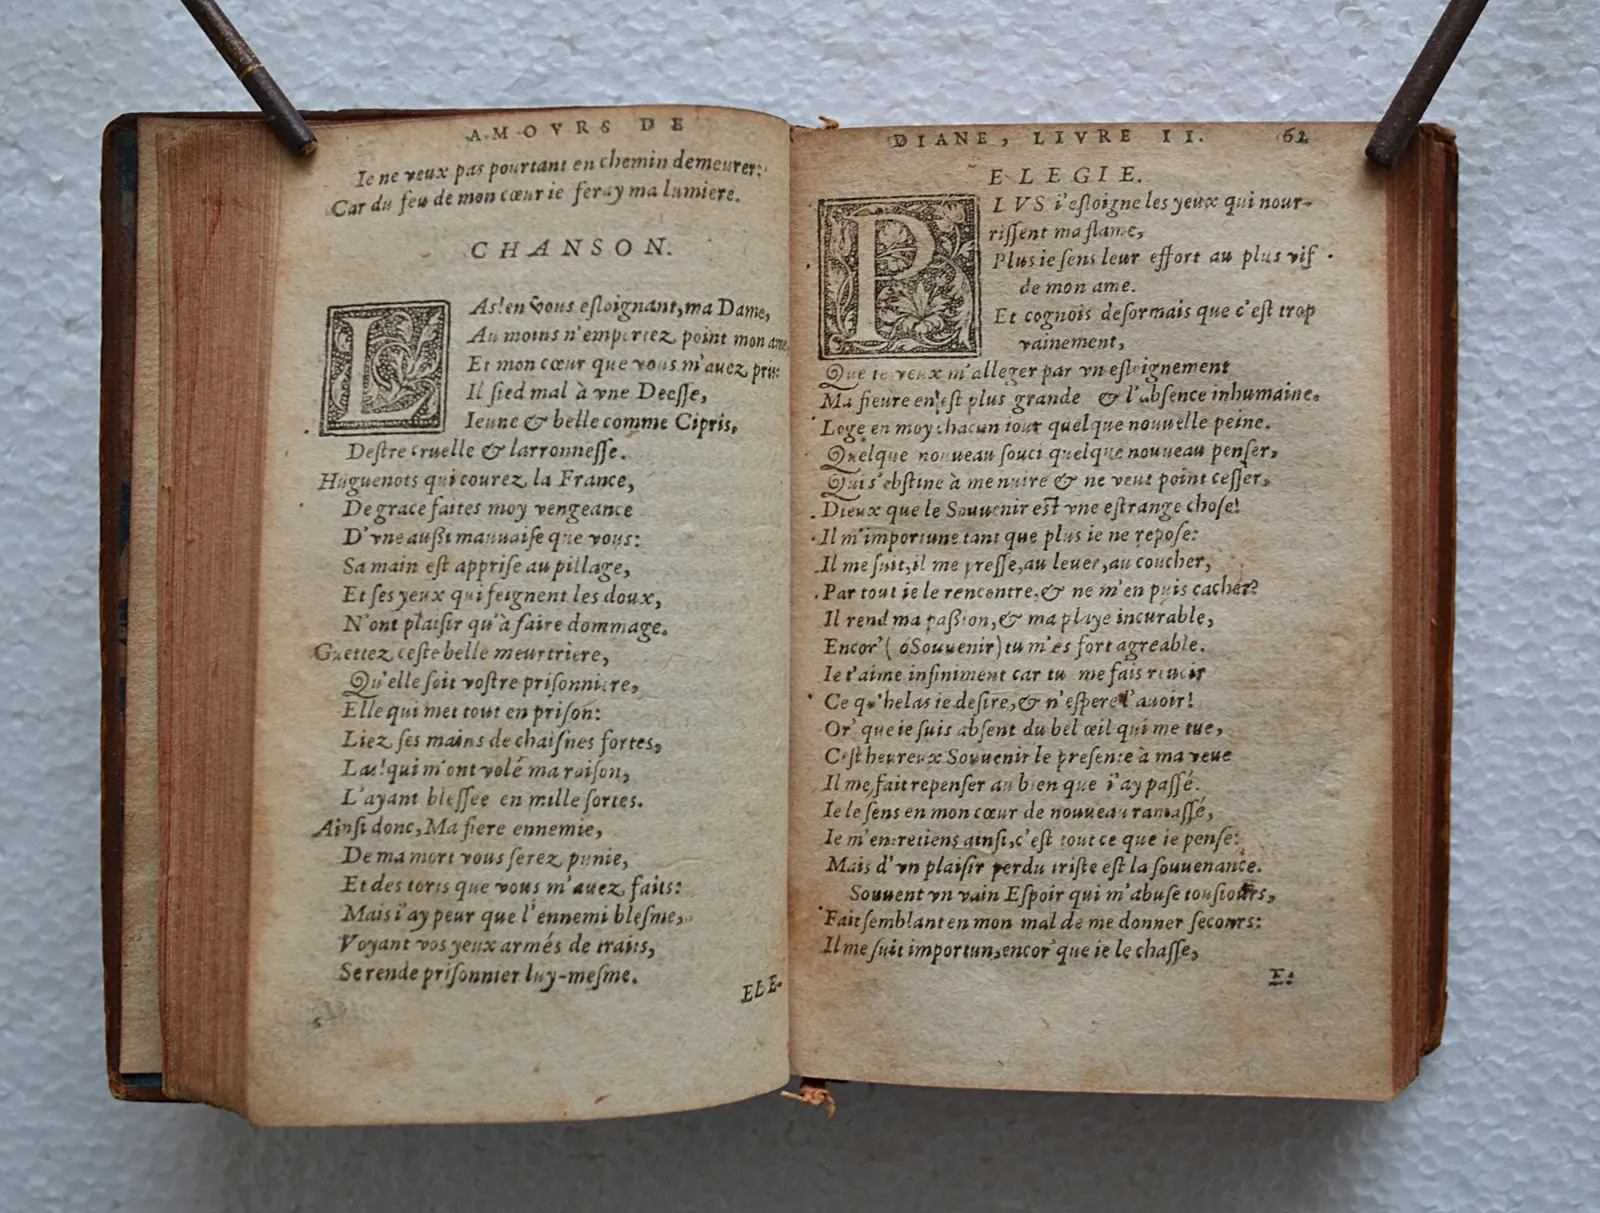 AMOVRS DE
Ie ne veux pas pourtant en chemin demeurer:
Car du feu de mon cœur ie feray ma lumiere.
CHANSON.
LAs! en vous esloignant, ma Dame,
Au moins n'emportez point mon ame
Et mon cœur que vous m'auez pris:
Il sied mal à vne Deesse,
Ieune & belle comme Cipris,
Destre cruelle & larronnesse.
Huguenots qui courez la France,
De grace faites moy vengeance
D'vne außi mauuaise que vous:
Sa main est apprise au pillage,
Et ses yeux qui feignent les doux,
N'ont plaisir qu'à faire dommage.
Guettez ceste belle meurtriere,
Qu'elle soit vostre prisonniere,
Elle qui met tout en prison:
Liez ses mains de chaisnes fortes,
Las! qui m'ont volé ma raison,
L'ayant blessee en mille sortes.
Ainsi donc, Ma fiere ennemie,
De ma mort vous serez punie,
Et des torts que vous m'auez faits:
Mais i'ay peur que l'ennemi blesme,
Voyant vos yeux armés de traits,
Se rende prisonnier luy-mesme.
ELE-
DIANE, LIVRE II. 62
ELEGIE.
PLVS i'esloigne les yeux qui nour-
rissent ma flame,
Plus ie sens leur effort au plus vif
de mon ame.
Et cognois desormais que c'est trop
vainement,
Que ie veux m'alleger par vn esloignement
Ma fieure en est plus grande & l'absence inhumaine.
Loge en moy chacun iour quelque nouuelle peine.
Quelque nouueau souci quelque nouueau penser,
Qui s'obstine à me nuire & ne veut point cesser,
Dieux que le Souuenir est vne estrange chose!
Il m'importune tant que plus ie ne repose:
Il me suit, il me presse, au leuer, au coucher,
Par tout ie le rencontre, & ne m'en puis cacher?
Il rend ma paßion, & ma playe incurable,
Encor' ( ó Souuenir) tu m'es fort agreable.
Ie t'aime infiniment car tu me fais reuoir
Ce qu'helas ie desire, & n'espere l'auoir!
Or' que ie suis absent du bel œil qui me tue,
C'est heureux Souuenir le presente à ma veue
Il me fait repenser au bien que i'ay passé.
Ie le sens en mon cœur de nouueau ramassé,
Ie m'entretiens ainsi, c'est tout ce que ie pense:
Mais d'vn plaisir perdu triste est la souuenance.
Souuent vn vain Espoir qui m'abuse tousiours,
Fait semblant en mon mal de me donner secours:
Il me suit importun, encor' que ie le chasse,